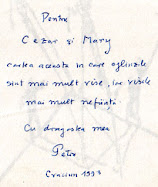 Pentru
Cezar și Mary
cartea aceasta în care oglinzile
sînt mai mult vise, iar visele
mai mult neființă
Cu dragostea mea
Petru
Crăciun 1993